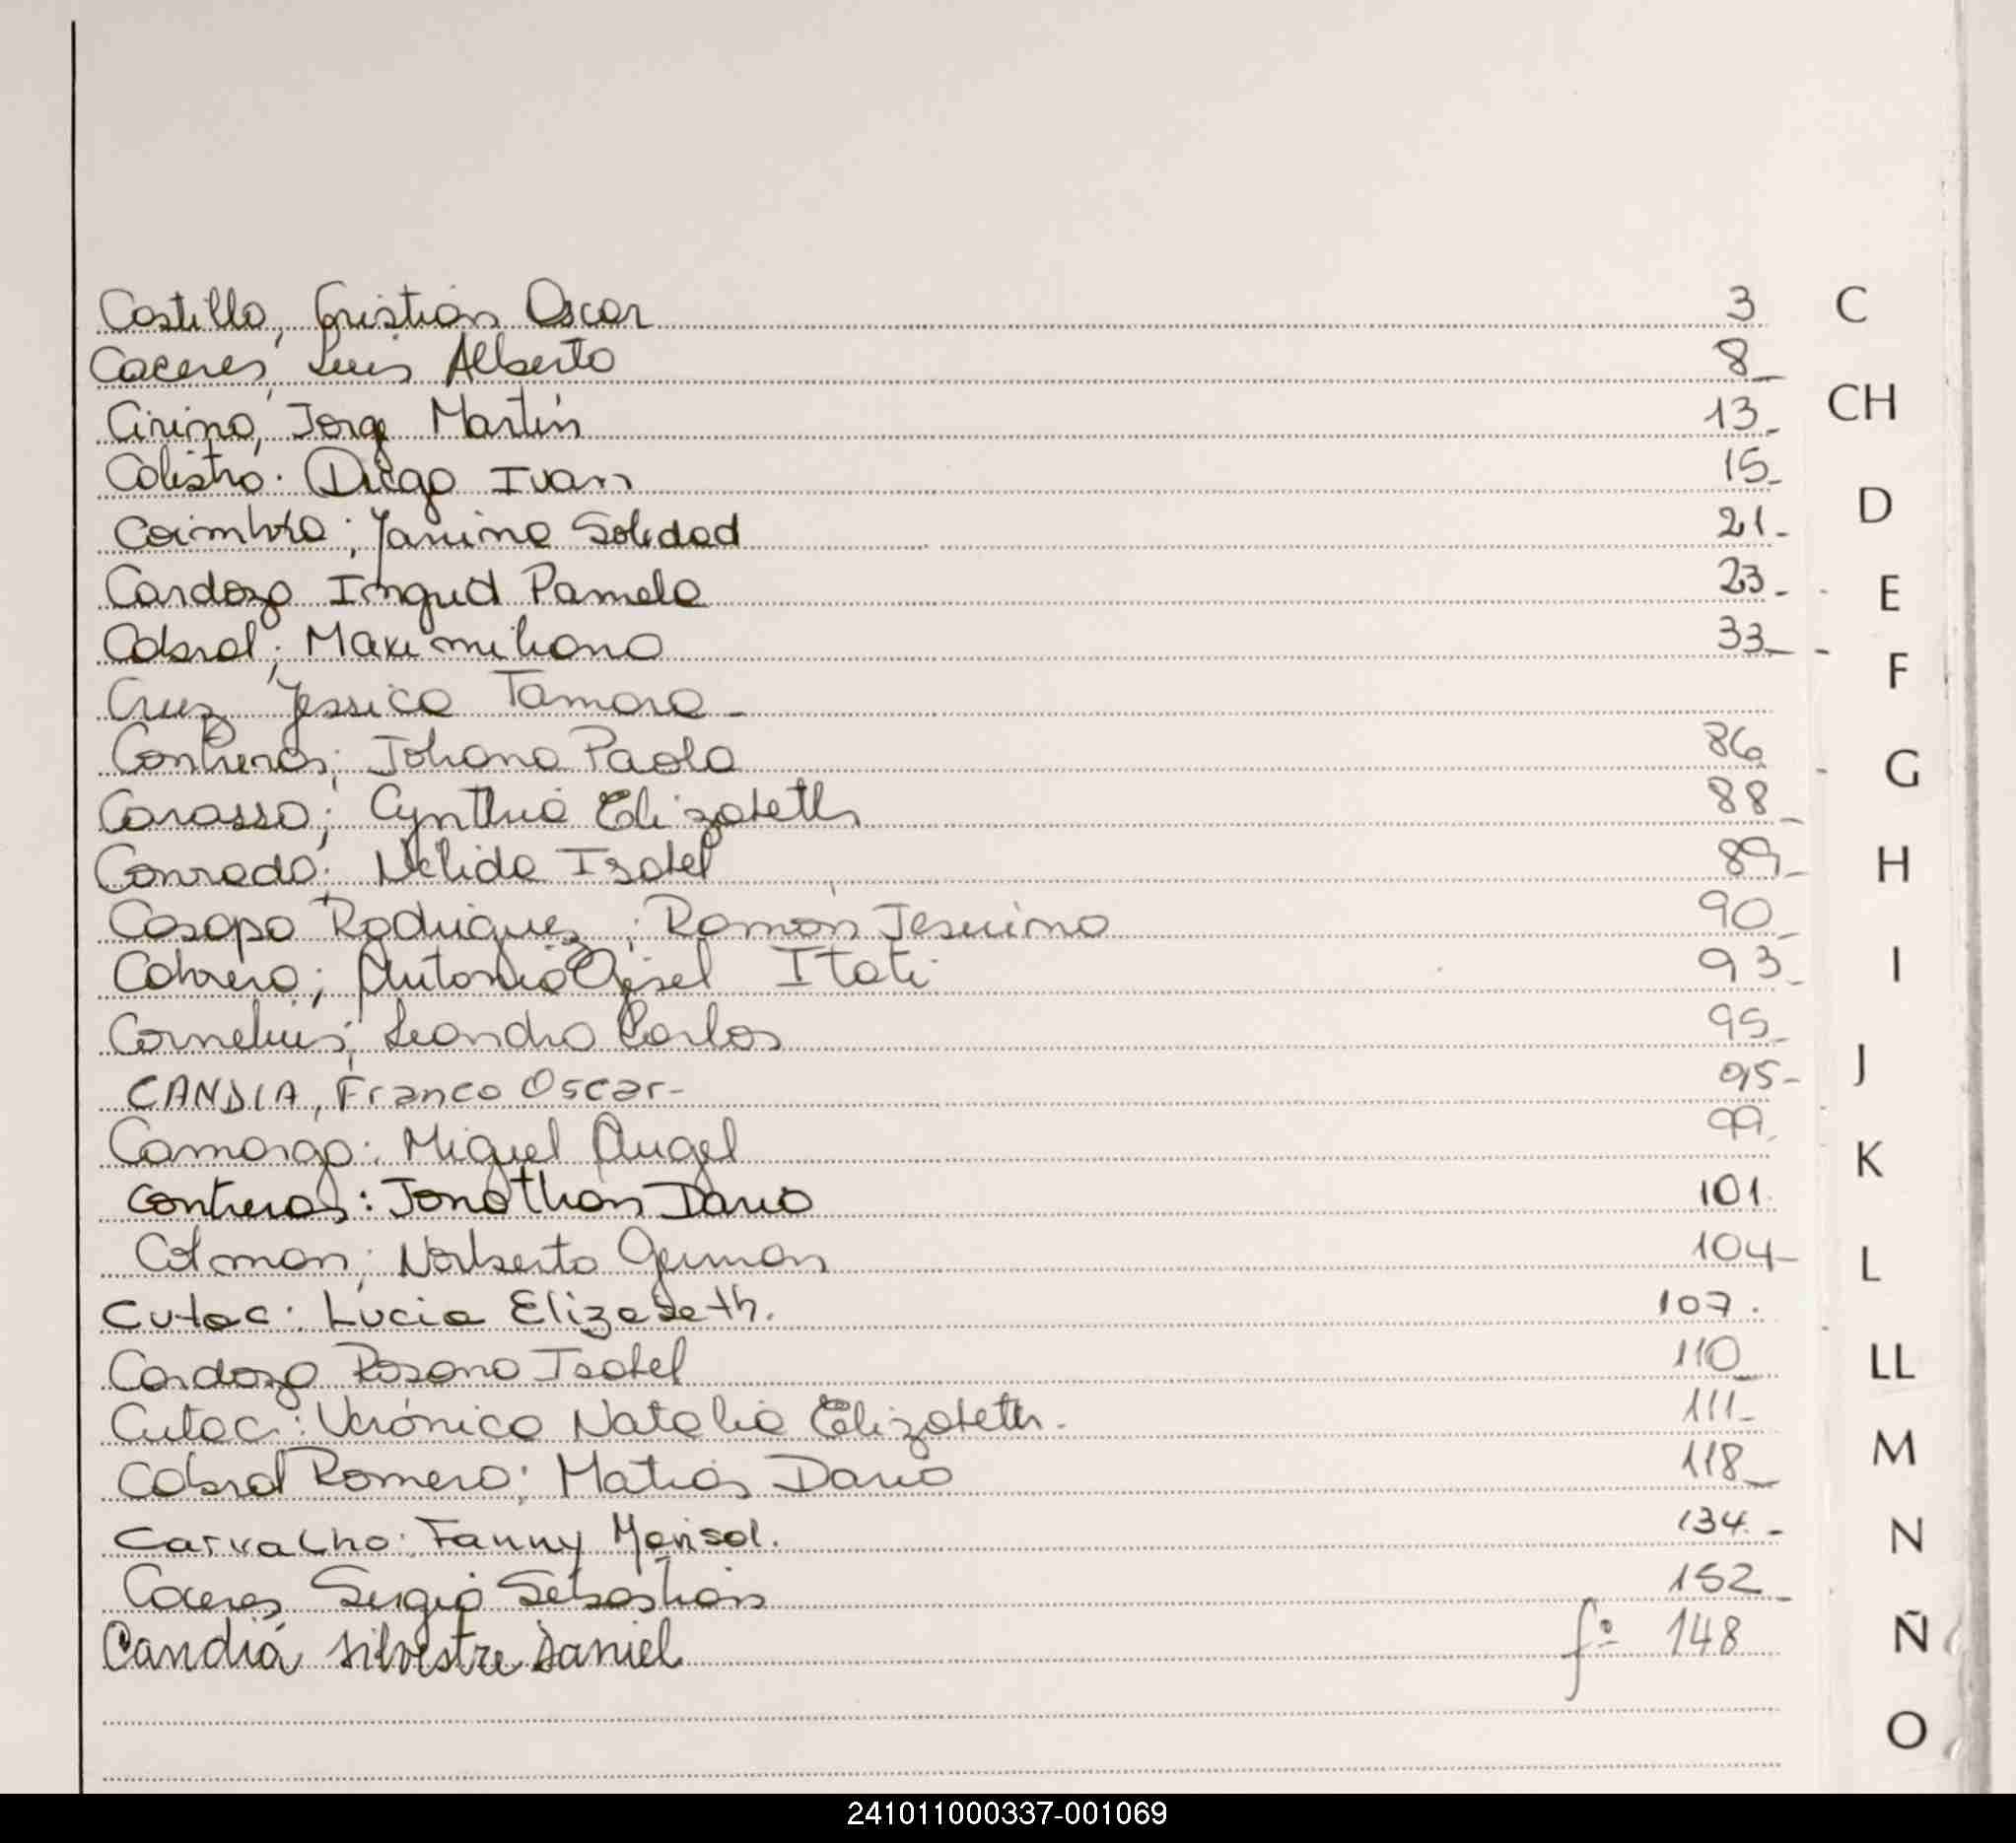 Castillo, Cristian Oscar 3 C
Caceres, Luis Alberto 8_
CH
Cirino, Jorge Martín 13_
Colistro. Diego Ivan 15_
D
Coimbra; Yanina Soledad 21-
Cardozo Ingrid Pamela 23-
E
Cabral; Maximiliano 33_-
F
Cruz Jessica Tamara-
Contreras; Johana Paola 86
G
Carasso; Cynthia Elizabeth 88_
Conrado; Nélida Isabel 89_
H
Casapo Rodriguez; Ramón Jesuino 90_
Cabrera; Antonia Gisel Itati 93_
I
Cornelius; Leandro Carlos 95_
CANDIA, Franco Oscar- 95-
J
Camargo: Miguel Angel 99
K
Contreras: Jonathan Dario 101.
Colman; Norberto German 104-
L
Cutac: Lucia Elizabeth. 107.
Cardozo Rosana Isabel 110_
LL
Cutac: Verónica Natalia Elizabeth. 111_
Cabral Romero; Matias Dario 118_
M
Carvalho: Fanny Marisol. 134.-
N
Caceres Sergio Sebastian 152_
Candia Silvestre Daniel fº 148
Ñ
O
241011000337-001069